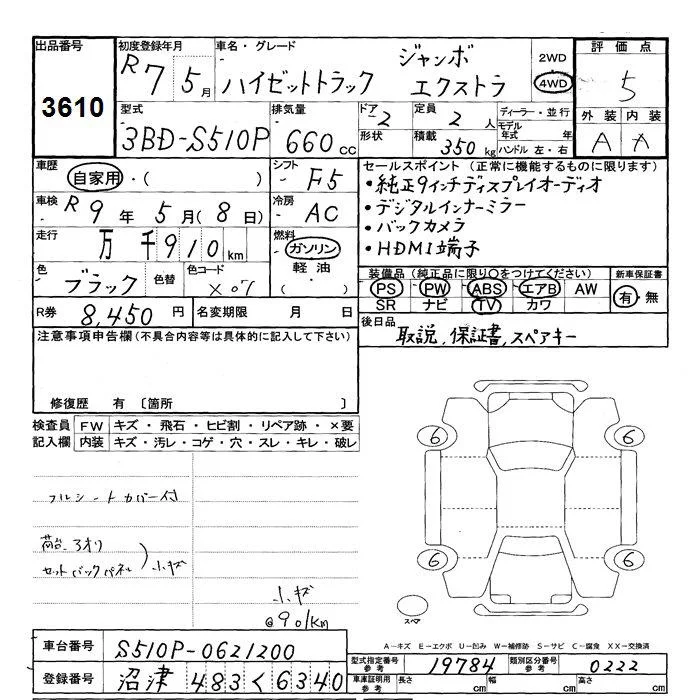 出品番号 初度登録年月 車名・グレード 2WD 評価点
3610 R7 5月 ハイゼットトラック ジャンボ エクストラ 4WD 5
型式 排気量 ドア 定員 ディーラー・並行 外装 内装
3BD-S510P 660cc 2 2人 モデル年式 年 A A
形状 積載 350kg ハンドル 左・右
車歴 シフト セールスポイント (正常に機能するものに限ります)
自家用・( ) F5 ・純正9インチディスプレイオーディオ
車検 R9年5月(8日) 冷房 AC ・デジタルインナーミラー
・バックカメラ
走行 万千910km 燃料 ガソリン ・HDMI端子
軽油・( )
色 ブラック 色替 色コード X07 装備品 (純正品に限り○をつけてください) 新車保証書
PS PW ABS エアB AW 有・無
SR ナビ TV カワ
R券 8,450円 名変期限 月 日 後日品
取説,保証書,スペアキー
注意事項申告欄(不具合内容等は具体的に記入して下さい)
修復歴 有 〔箇所 〕
検査員 FW キズ・飛石・ヒビ割・リペア跡・×要
記入欄 内装 キズ・汚レ・コゲ・穴・スレ・キレ・破レ
6 6
フルシートカバー付
荷台、アオリ
セットバックパネル 小キズ
6 6
小キズ
@901km
スペア
A-キズ E-エクボ U-凹み W-補修跡 S-サビ C-腐食 XX-交換済
車台番号 S510P-0621200
型式指定番号 参考 19784 類別区分番号 参考 0222
登録番号 沼津 483く6340
車庫証明用 参考 長さ cm 幅 cm 高さ cm